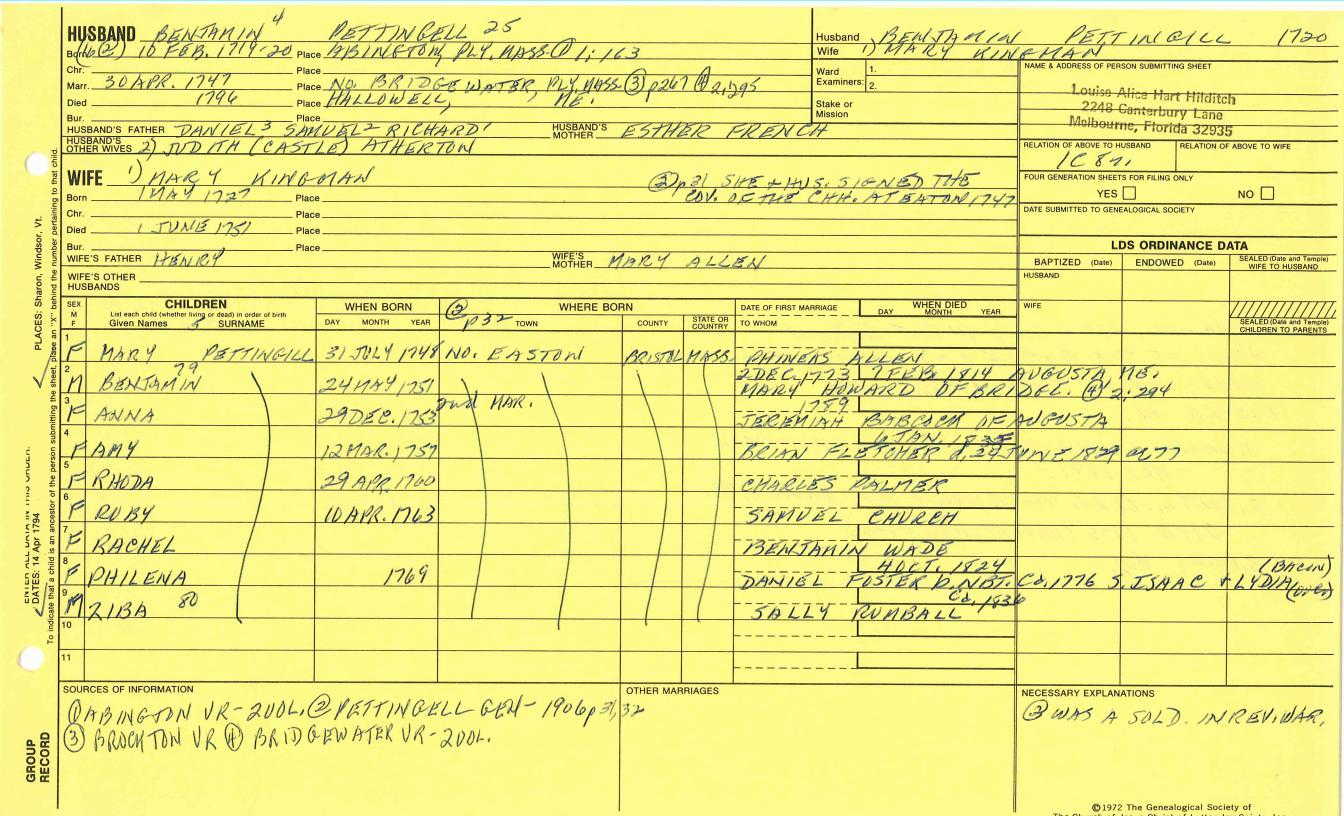 HUSBAND BENJAMIN 4 PETTINGELL 25
Born (16 (2)) 10 FEB. 1719-20 Place ABINGTON, PLY. MASS (1) 1; 163
Chr. Place
Marr. 30 APR. 1747 Place NO. BRIDGEWATER, PLY. MASS (3) p267 (4) 2,295
Died 1796 Place HALLOWELL, ME.
Bur. Place
HUSBAND'S FATHER DANIEL 3 SAMUEL 2 RICHARD 1 HUSBAND'S MOTHER ESTHER FRENCH
HUSBAND'S OTHER WIVES 2) JUDITH (CASTLE) ATHERTON
Husband BENJAMIN PETTINGILL 1720
Wife 1) MARY KINGMAN
Ward Examiners: 1.
2.
Stake or Mission
NAME & ADDRESS OF PERSON SUBMITTING SHEET
Louise Alice Hart Hilditch
2248 Canterbury Lane
Melbourne, Florida 32935
RELATION OF ABOVE TO HUSBAND RELATION OF ABOVE TO WIFE
1C 8r.
FOUR GENERATION SHEETS FOR FILING ONLY
YES NO
DATE SUBMITTED TO GENEALOGICAL SOCIETY
WIFE 1) MARY KINGMAN (2) p31 SHE & HUS. SIGNED THE
Born 1 MAY 1727 Place COV. OF THE CHH. AT EATON 1747
Chr. Place
Died 1 JUNE 1751 Place
Bur. Place
WIFE'S FATHER HENRY WIFE'S MOTHER MARY ALLEN
WIFE'S OTHER HUSBANDS
LDS ORDINANCE DATA
BAPTIZED (Date) ENDOWED (Date) SEALED (Date and Temple) WIFE TO HUSBAND
HUSBAND
WIFE
SEALED (Date and Temple) CHILDREN TO PARENTS
SEX M F CHILDREN WHEN BORN (2) p32 WHERE BORN DATE OF FIRST MARRIAGE WHEN DIED
List each child (whether living or dead) in order of birth
Given Names 5 SURNAME DAY MONTH YEAR TOWN COUNTY STATE OR COUNTRY TO WHOM DAY MONTH YEAR
1 F MARY PETTINGILL 31 JULY 1748 NO. EASTON BRISTOL MASS. PHINEAS ALLEN
2 M BENJAMIN 79 24 MAY 1751 2 DEC. 1773 7 FEB. 1814 AUGUSTA, ME.
MARY HOWARD OF BRIDGE. (4) 2:294
2nd MAR.
3 F ANNA 29 DEC. 1753 1789 JEREMIAH BABCOCK OF AUGUSTA
4 F AMY 12 MAR. 1757 BRIAN FLETCHER d. 24 JUNE 1829 ae 77
5 F RHODA 29 APR. 1760 CHARLES PALMER
6 F RUBY 10 APR. 1763 SAMUEL CHURCH
7 F RACHEL BENJAMIN WADE
8 F PHILENA 1769 4 OCT. 1824 (BACIN)
DANIEL FOSTER b. NBT. Ca. 1776 S. ISAAC & LYDIA (over)
9 M ZIBA 80 Ca. 1836 SALLY RUMBALL
10
11
SOURCES OF INFORMATION
(1) ABINGTON VR- 2VOL. (2) PETTINGELL GEN- 1906 p 31,32
(3) BROCKTON VR (4) BRIDGEWATER VR- 2VOL.
OTHER MARRIAGES
NECESSARY EXPLANATIONS
(2) WAS A SOLD. IN REV. WAR.
PLACES: Sharon, Windsor, Vt.
ENTER ALL DATA IN THIS ORDER:
DATES: 14 Apr 1794
To indicate that a child is an ancestor of the person submitting the sheet, place an "X" behind the number pertaining to that child.
GROUP RECORD
©1972 The Genealogical Society of